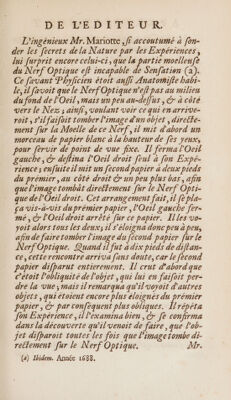 DE L'EDITEUR.
L'ingénieux Mr. Mariotte, si accoutumé à son-
der les secrets de la Nature par les Expériences,
lui surprit encore celui-ci, que la partie moelleuse
du Nerf Optique est incapable de Sensation (a).
Ce savant Physicien étoit aussi Anatomiste habi-
le, il savoit que le Nerf Optique n'est pas au milieu
du fond de l'Oeil, mais un peu au-dessus, & à côté
vers le Nez; ainsi, voulant voir ce qui en arrive-
roit, s'il faisoit tomber l'image d'un objet, directe-
ment sur la Moelle de ce Nerf, il mit d'abord un
morceau de papier blanc à la hauteur de ses yeux,
pour servir de point de vue fixe. Il ferma l'Oeil
gauche, & destina l'Oeil droit seul à son Expé-
rience; ensuite il mit un second papier à deux pieds
du prémier, au côté droit & un peu plus bas, afin
que l'image tombât directement sur le Nerf Opti-
que de l'Oeil droit. Cet arrangement fait, il se pla-
ça vis-à-vis du prémier papier, l'Oeil gauche fer-
mé, & l'Oeil droit arrêté sur ce papier. Il les vo-
yoit alors tous les deux; il s'éloigna donc peu à peu,
afin de faire tomber l'image du second papier sur le
Nerf Optique. Quand il fut à dix pieds de distan-
ce, cette rencontre arriva sans doute, car le second
papier disparut entierement. Il crut d'abord que
c'étoit l'obliquité de l'objet, qui lui en faisoit per-
dre la vue; mais il remarqua qu'il voyoit d'autres
objets, qui étoient encore plus éloignés du prémier
papier, & par conséquent plus obliques. Il répéta
son Expérience, il l'examina bien, & se confirma
dans la découverte qu'il venoit de faire, que l'ob-
jet disparoit toutes les fois que l'image tombe di-
rectement sur le Nerf Optique. Mr.
(a) Ibidem. Année 1688.